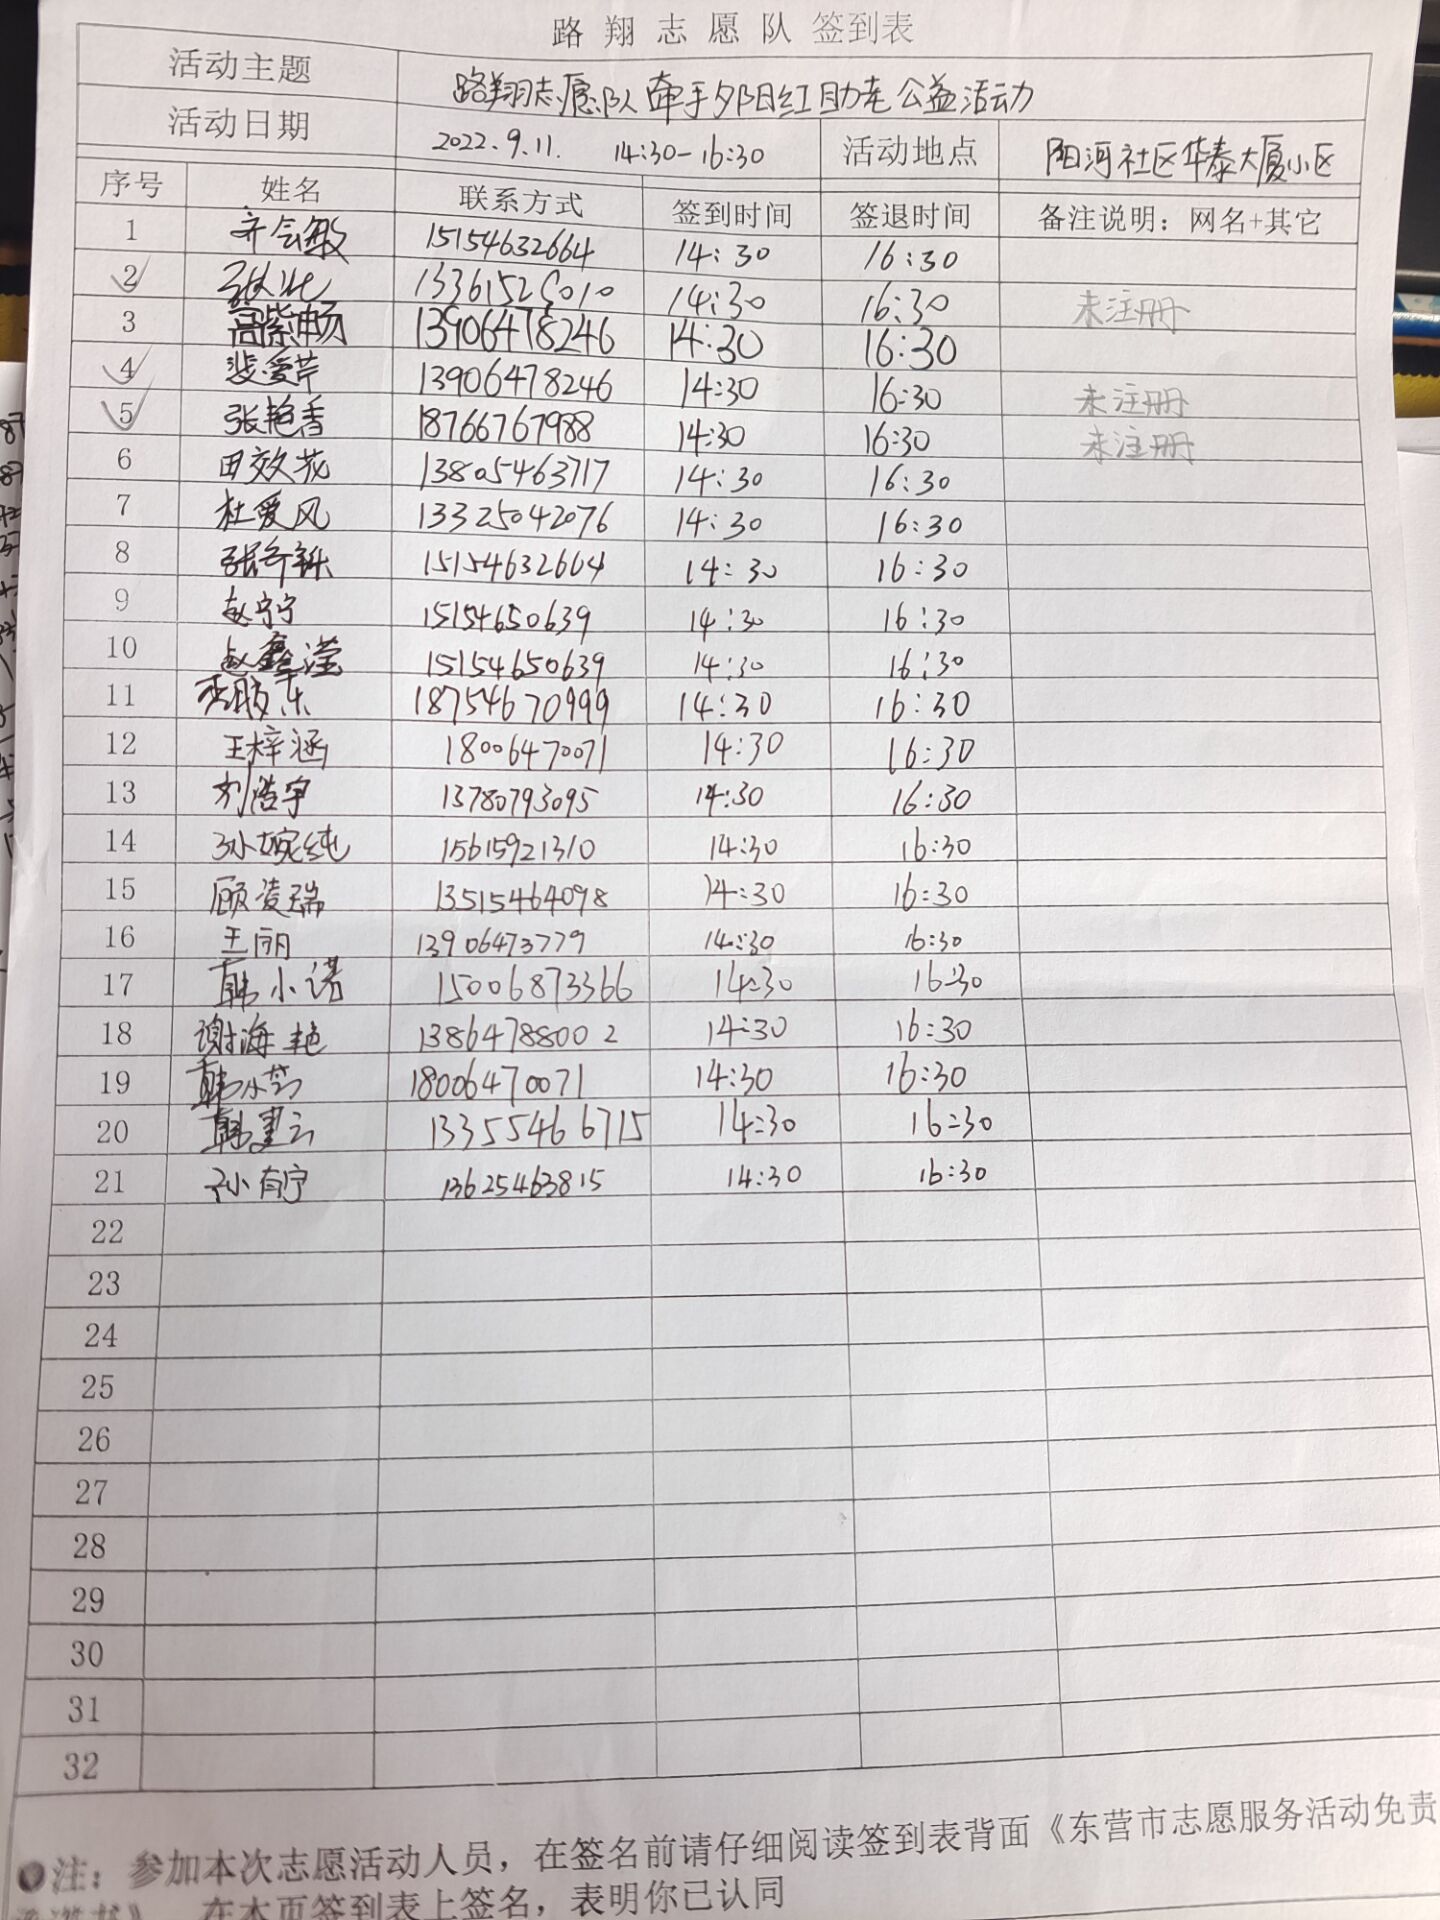 路翔志愿队签到表
活动主题 路翔志愿队牵手夕阳红助老公益活动
活动日期 2022.9.11. 14:30-16:30 活动地点 阳河社区华泰大厦小区
序号 姓名 联系方式 签到时间 签退时间 备注说明：网名+其它
1 齐会敏 15154632664 14:30 16:30
2 13361525010 14:30 16:30 未注册
3 高紫畅 13906478246 14:30 16:30
4 裴爱芹 13906478246 14:30 16:30 未注册
5 张艳香 18766767988 14:30 16:30 未注册
6 田效花 13805463717 14:30 16:30
7 杜爱风 13325042076 14:30 16:30
8 15154632664 14:30 16:30
9 赵宁宁 15154650639 14:30 16:30
10 赵鑫滢 15154650639 14:30 16:30
11 18754670999 14:30 16:30
12 王梓涵 18006470071 14:30 16:30
13 刘浩宇 13780793095 14:30 16:30
14 孙婉纯 15615921310 14:30 16:30
15 顾凌瑞 13515464098 14:30 16:30
16 王丽 13906473779 14:30 16:30
17 韩小诺 15006873366 14:30 16:30
18 谢海艳 13864788002 14:30 16:30
19 18006470071 14:30 16:30
20 13355466715 14:30 16:30
21 孙有宁 13625463815 14:30 16:30
22
23
24
25
26
27
28
29
30
31
32
注：参加本次志愿活动人员，在签名前请仔细阅读签到表背面《东营市志愿服务活动免责
》，在本页签到表上签名，表明你已认同